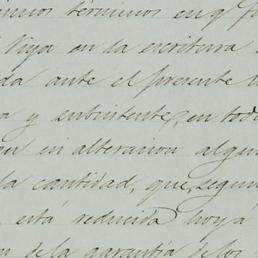 mismos términos en q.e f
Vega en la escritura
da ante el presente
a y subsistente, en todo
an en alteracion algun
la cantidad, que, segun
está reducida hoy á
n de la garantía de los